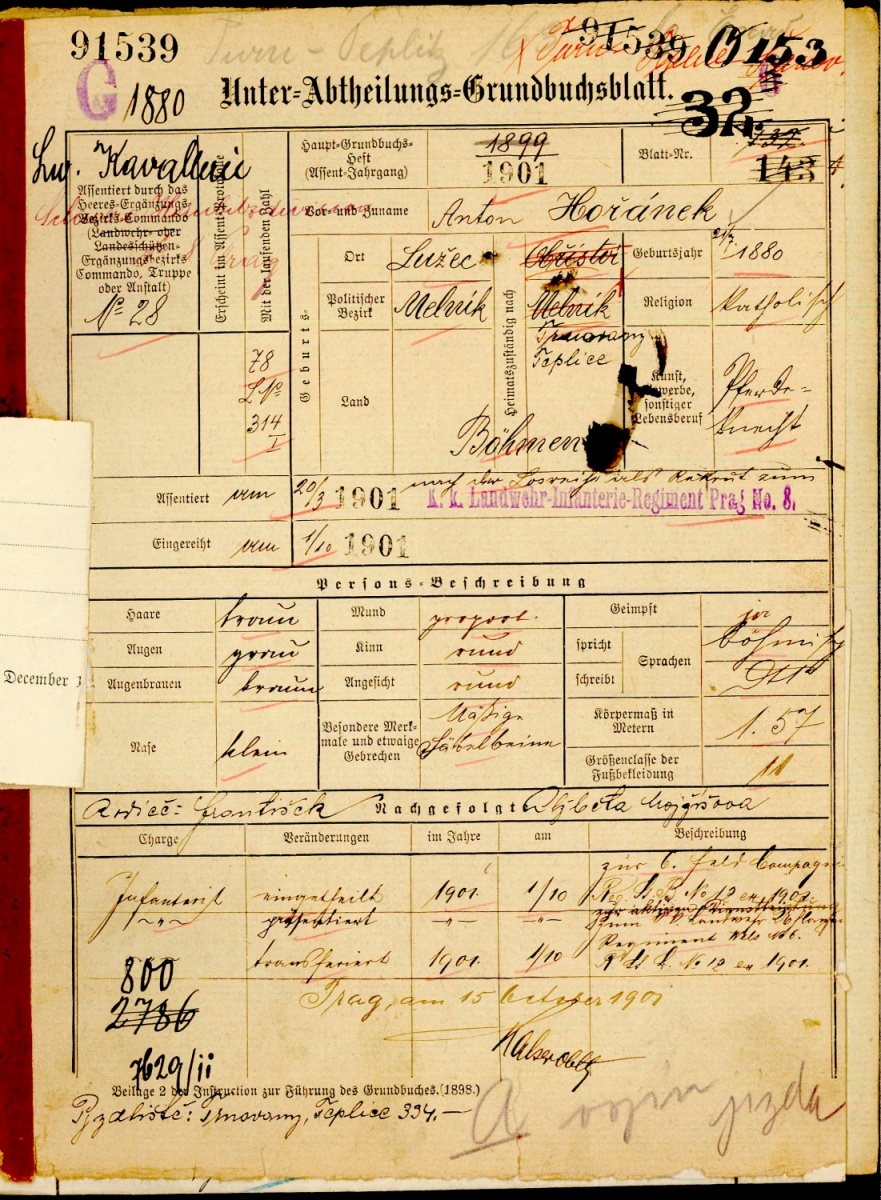 91539
Turn-Teplitz
91539
153
G
1880
Unter-Abtheilungs-Grundbuchsblatt.
32
Lw. Kavallerie
Assentiert durch das
Heeres-Ergänzungs-
Bezirks-Commando
(Landwehr- oder
Landesschützen-
Ergänzungsbezirks
Commando, Truppe
oder Anstalt)
Nº 28
Erscheint im Assent-Protokolle
Mit der laufenden Zahl
78
L Nº
314
I
Haupt-Grundbuchs-
Heft
(Assent-Jahrgang)
1899
1901
Blatt-Nr.
143
Vor- und Zuname
Anton Hořánek
Geburts-
Ort
Lužec
Heimatszuständig nach
Obříství
Geburtsjahr
1880
Politischer
Bezirk
Melnik
Melnik
Trnovany
Teplice
Religion
Katholisch
Land
Böhmen
Kunst,
Gewerbe,
sonstiger
Lebensberuf
Pferde-
knecht
Assentiert
am
20/3 1901
nach der Losreihe als Rekrut zum
K. k. Landwehr-Infanterie-Regiment Prag No. 8.
Eingereiht
am
1/10 1901
Persons-Beschreibung
Haare
braun
Mund
proport.
Geimpft
ja
Augen
grau
Kinn
rund
spricht
schreibt
Sprachen
böhmisch
Augenbrauen
braun
Angesicht
rund
Nase
klein
Besondere Merk-
male und etwaige
Gebrechen
Mäßige
Säbelbeine
Körpermaß in
Metern
1.57
Größenclasse der
Fußbekleidung
11
December
Rodiče: František
Nachgefolgt
Alžběta
Charge
Veränderungen
im Jahre
am
Beschreibung
Infanterist
eingetheilt
1901
1/10
zur 6. Feld Compagnie
R. L. B. No 12 ex 1901
präsentiert
transferiert
1901.
1/10
zum k. k. Landwehr
Regiment No 6.
No 12 ex 1901.
Prag, am 15 October 1901
800
2786
7629/ii
Beilage 2 der Instruction zur Führung des Grundbuches. (1898.)
Bydliště: Trnovany, Teplice 334.—
A vozín jizda